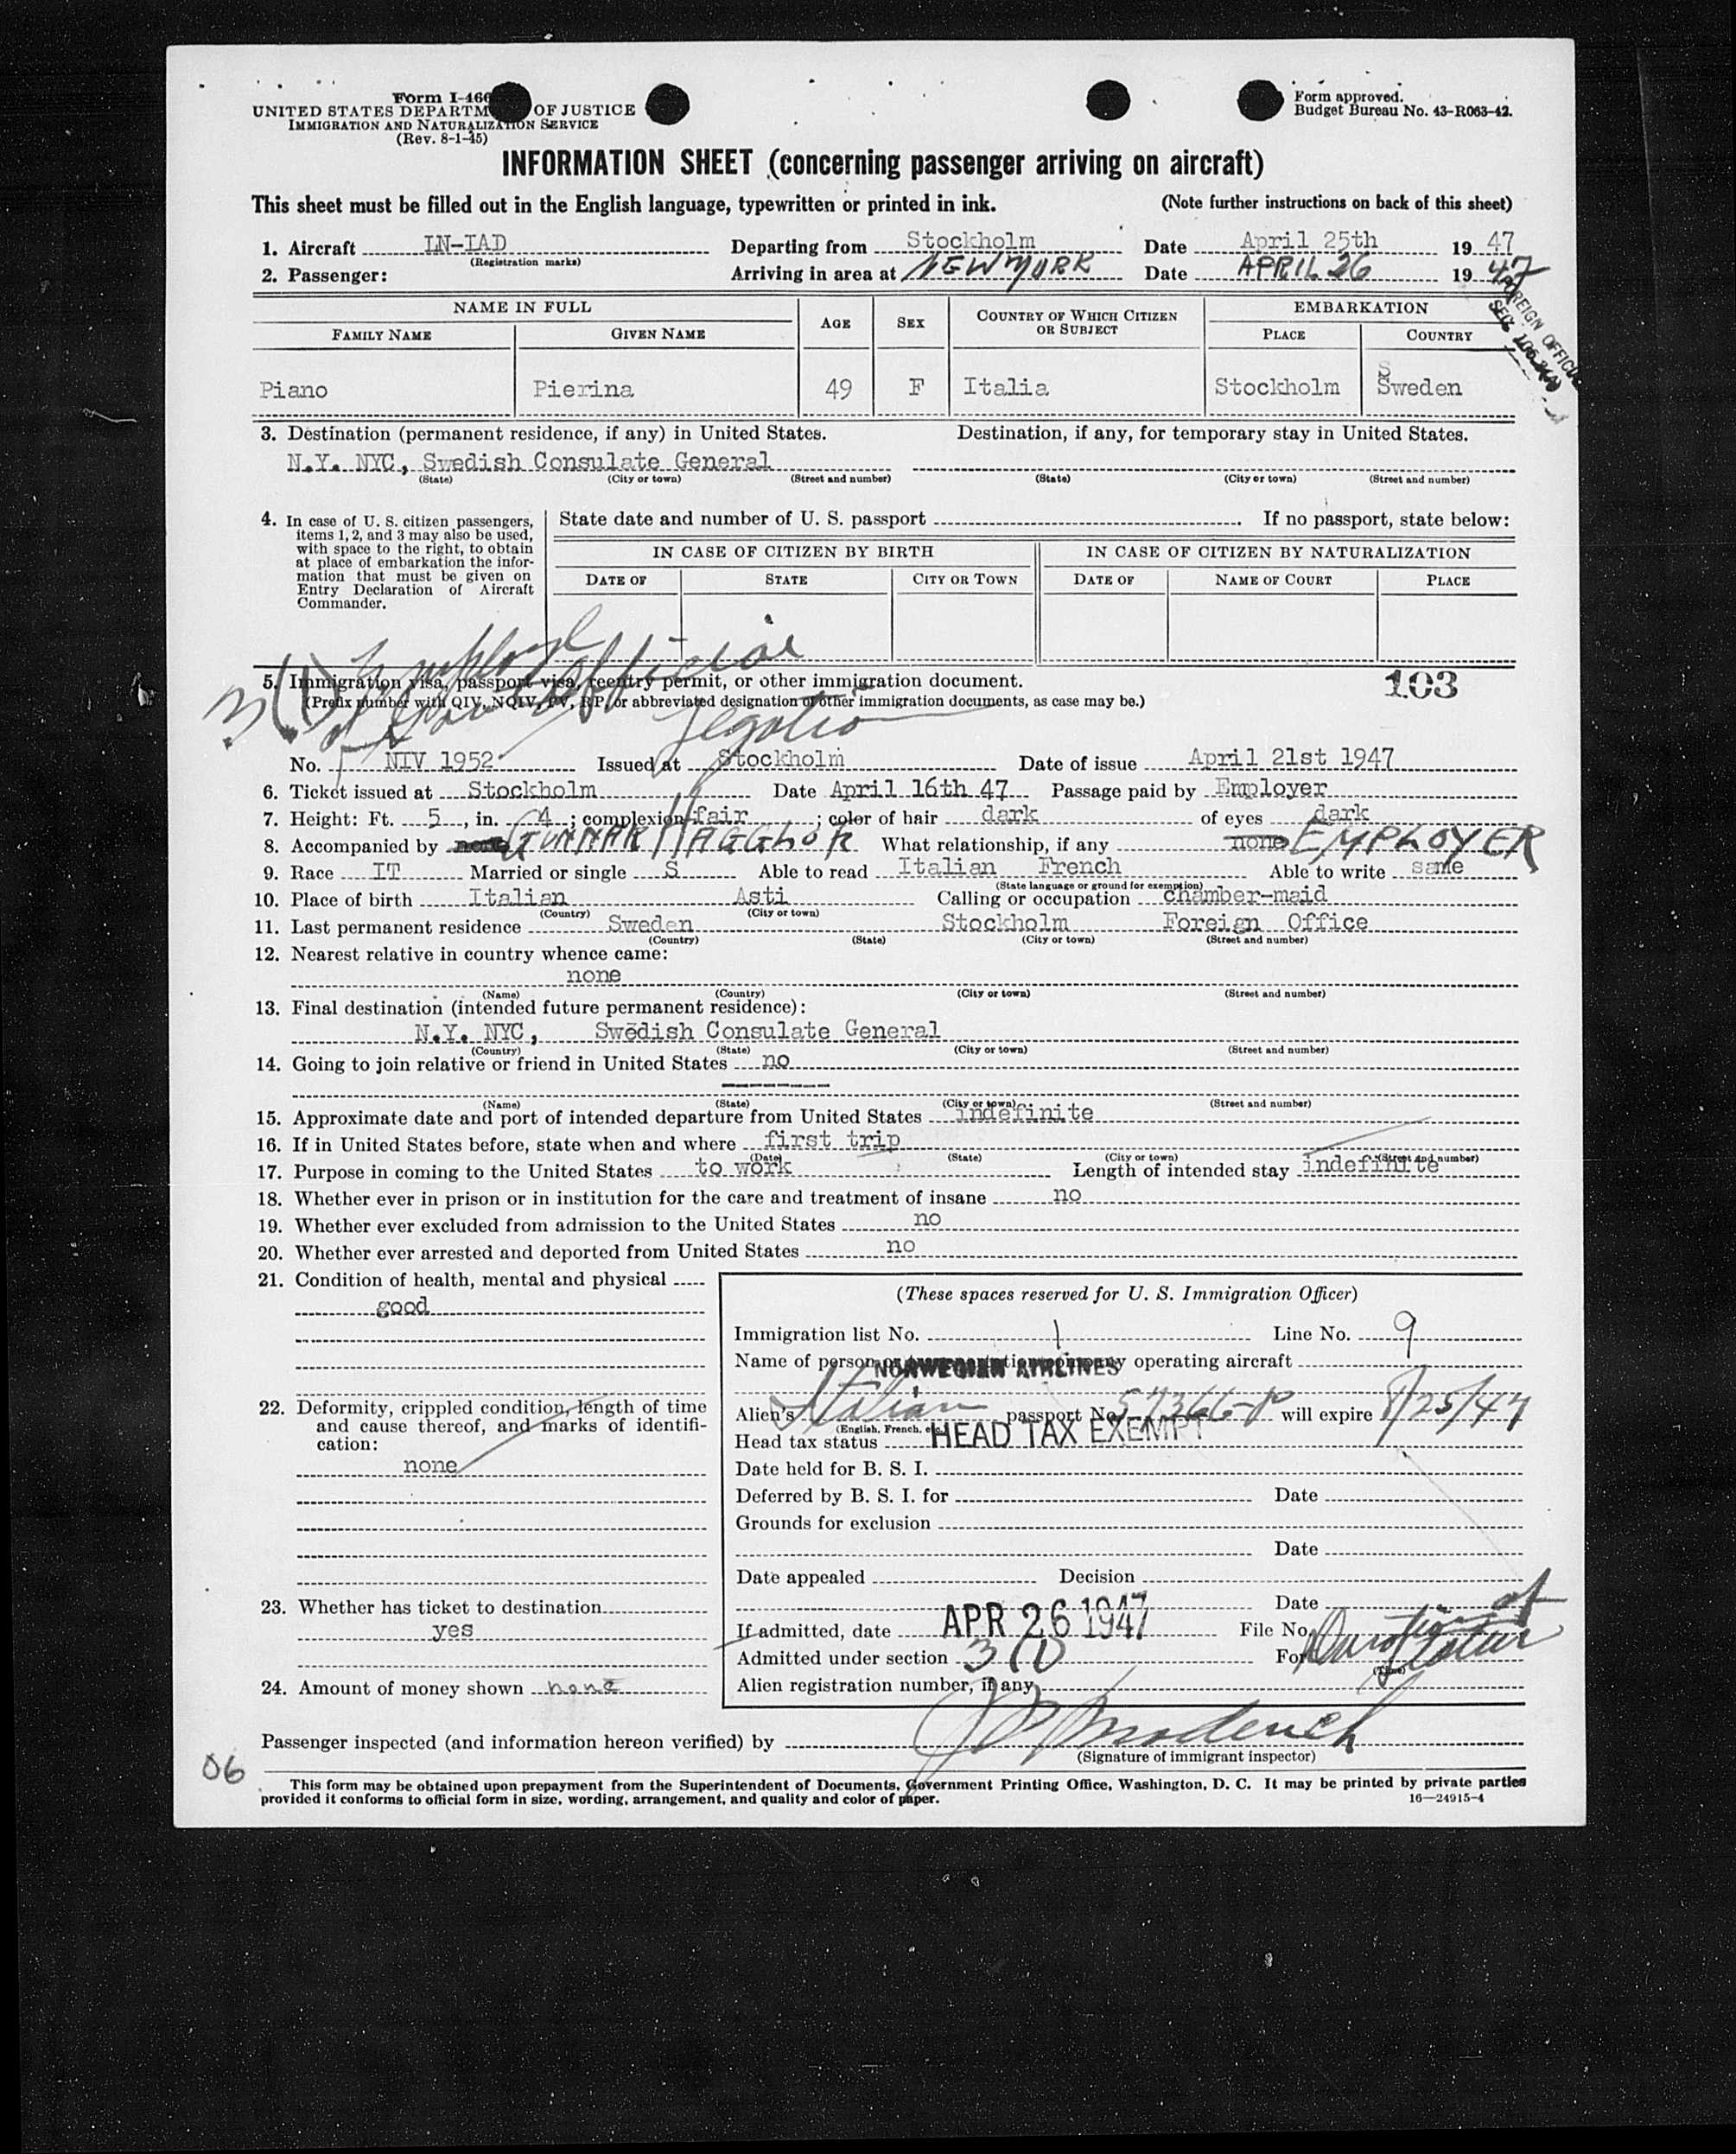 Form I-466
UNITED STATES DEPARTMENT OF JUSTICE
IMMIGRATION AND NATURALIZATION SERVICE
(Rev. 8-1-45)
Form approved.
Budget Bureau No. 43-R063-42.
INFORMATION SHEET (concerning passenger arriving on aircraft)
This sheet must be filled out in the English language, typewritten or printed in ink. (Note further instructions on back of this sheet)
1. Aircraft LN-IAD Departing from Stockholm Date April 25th 19 47
(Registration marks)
2. Passenger: Arriving in area at NEW YORK Date APRIL 26 19 47
FOREIGN OFFICIAL
SEC.
NAME IN FULL AGE SEX COUNTRY OF WHICH CITIZEN OR SUBJECT EMBARKATION
FAMILY NAME GIVEN NAME PLACE COUNTRY
S
Piano Pierina 49 F Italia Stockholm Sweden
3. Destination (permanent residence, if any) in United States. Destination, if any, for temporary stay in United States.
N.Y. NYC, Swedish Consulate General
(State) (City or town) (Street and number) (State) (City or town) (Street and number)
4. In case of U. S. citizen passengers,
items 1, 2, and 3 may also be used,
with space to the right, to obtain
at place of embarkation the infor-
mation that must be given on
Entry Declaration of Aircraft
Commander.
State date and number of U. S. passport . If no passport, state below:
IN CASE OF CITIZEN BY BIRTH IN CASE OF CITIZEN BY NATURALIZATION
DATE OF STATE CITY OR TOWN DATE OF NAME OF COURT PLACE
3(1) official
5. Immigration visa, passport visa, reentry permit, or other immigration document. 103
(Prefix number with QIV, NQIV, PV, RP, or abbreviated designation of other immigration documents, as case may be.)
No. NIV 1952 Issued at Stockholm Date of issue April 21st 1947
6. Ticket issued at Stockholm Date April 16th 47 Passage paid by Employer
7. Height: Ft. 5, in. 4; complexion fair; color of hair dark of eyes dark
8. Accompanied by none GUNNAR HAGGLOF What relationship, if any none EMPLOYER
9. Race IT Married or single S Able to read Italian French Able to write same
(State language or ground for exemption)
10. Place of birth Italian Asti Calling or occupation chamber-maid
(Country) (City or town)
11. Last permanent residence Sweden Stockholm Foreign Office
(Country) (State) (City or town) (Street and number)
12. Nearest relative in country whence came:
none
(Name) (Country) (City or town) (Street and number)
13. Final destination (intended future permanent residence):
N.Y. NYC, Swedish Consulate General
(Country) (State) (City or town) (Street and number)
14. Going to join relative or friend in United States no
(Name) (State) (City or town) (Street and number)
15. Approximate date and port of intended departure from United States indefinite
16. If in United States before, state when and where first trip
(Date) (State) (City or town) (Street and number)
17. Purpose in coming to the United States to work Length of intended stay indefinite
18. Whether ever in prison or in institution for the care and treatment of insane no
19. Whether ever excluded from admission to the United States no
20. Whether ever arrested and deported from United States no
21. Condition of health, mental and physical
good
22. Deformity, crippled condition, length of time
and cause thereof, and marks of identifi-
cation:
none
23. Whether has ticket to destination
yes
24. Amount of money shown none
(These spaces reserved for U. S. Immigration Officer)
Immigration list No. 1 Line No. 9
Name of person or transportation company operating aircraft
NORWEGIAN AIRLINES
Alien's Italian passport No. 57366-P will expire 8/25/47
(English, French, etc.)
Head tax status HEAD TAX EXEMPT
Date held for B. S. I.
Deferred by B. S. I. for Date
Grounds for exclusion
Date
Date appealed Decision
Date
If admitted, date APR 26 1947 File No.
Admitted under section 3(1) For Duration of status
(Time)
Alien registration number, if any
Passenger inspected (and information hereon verified) by
(Signature of immigrant inspector)
06
This form may be obtained upon prepayment from the Superintendent of Documents, Government Printing Office, Washington, D. C. It may be printed by private parties
provided it conforms to official form in size, wording, arrangement, and quality and color of paper. 16—24915-4